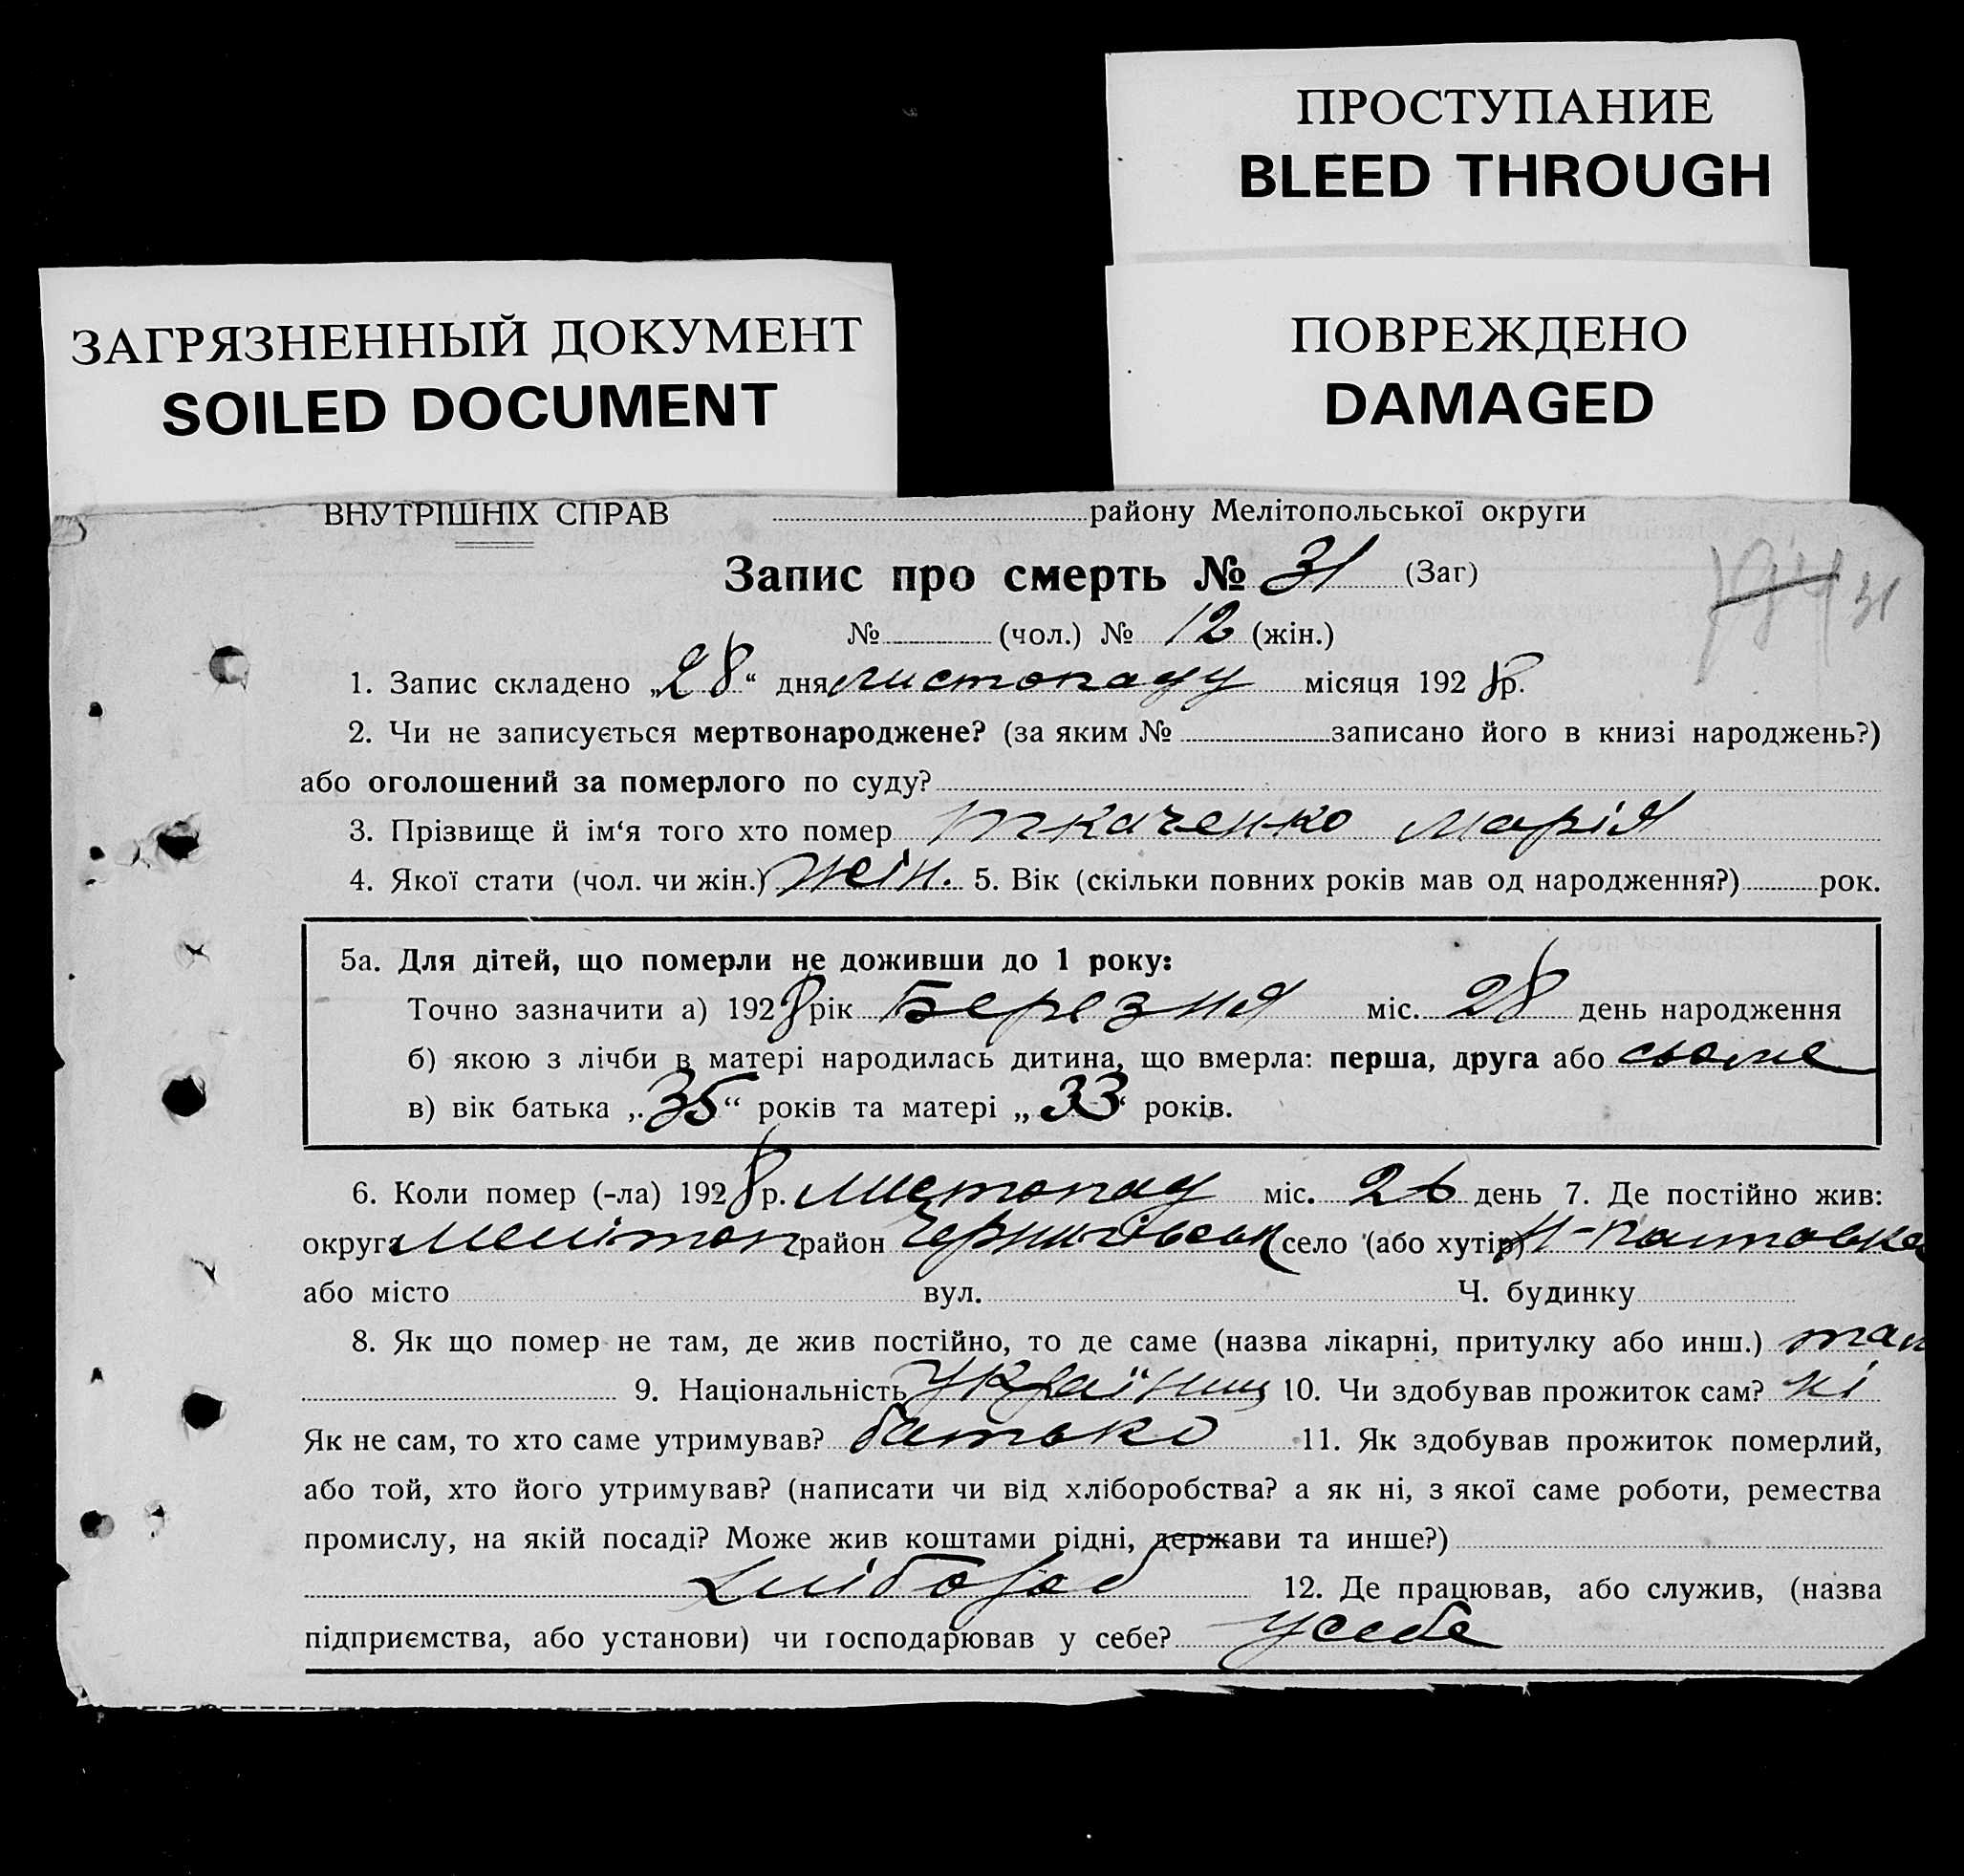 ПРОСТУПАНИЕ
BLEED THROUGH
ЗАГРЯЗНЕННЫЙ ДОКУМЕНТ
SOILED DOCUMENT
ПОВРЕЖДЕНО
DAMAGED
ВНУТРІШНІХ СПРАВ района Мелітопольської округи
Запис про смерть № 31 (Заг)
31
№ (чол.) № 12 (жін.)
1. Запис складено „28“ дня листопаду місяця 1928 р.
2. Чи не записується мертвонароджене? (за яким № записано його в книзі народжень?)
або оголошений за померлого по суду?
3. Прізвище й ім‘я того хто помер Ткаченко Марія
4. Якої стати (чол. чи жін.) жін. 5. Вік (скільки повних років мав од народження?) рок.
5а. Для дітей, що померли не доживши до 1 року:
Точно зазначити а) 1928 рік Березня міс. 28 день народження
б) якою з лічби в матері народилась дитина, що вмерла: перша, друга або сьоме
в) вік батька „35“ років та матері „33“ років.
6. Коли помер (-ла) 1928 р. Листопад міс. 26 день 7. Де постійно жив:
округа Мелітоп район Чернигівськ село (або хутір)
або місто вул. Ч. будинку
8. Як що помер не там, де жив постійно, то де саме (назва лікарні, притулку або инш.) там
9. Національність 10. Чи здобував прожиток сам? ні
Як не сам, то хто саме утримував? батько 11. Як здобував прожиток померлий,
або той, хто його утримував? (написати чи від хліборобства? а як ні, з якої саме роботи, ремества
промислу, на якій посаді? Може жив коштами рідні, держави та инше?)
Хлібороб 12. Де працював, або служив, (назва
підприємства, або установи) чи господарював у себе? у себе